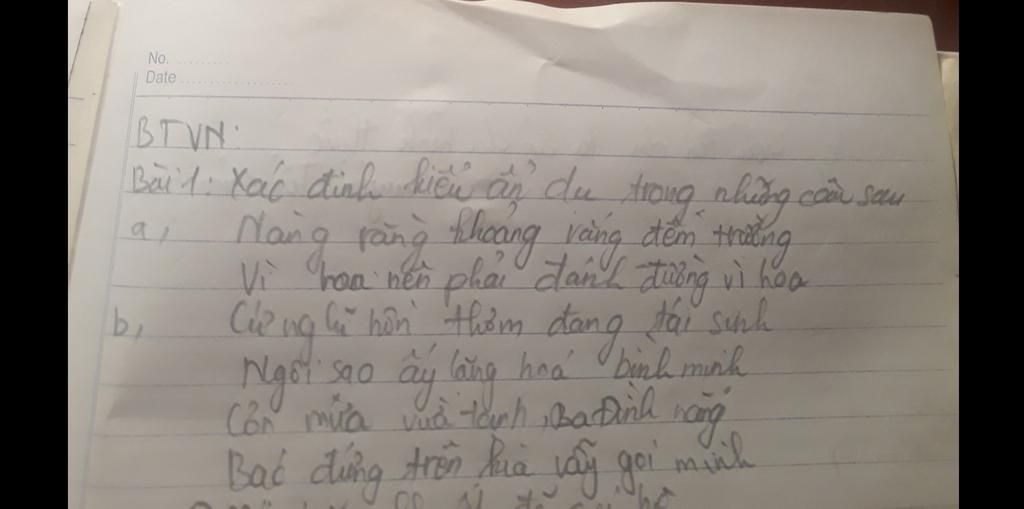 No.
Date
BTVN:
Bài 1: Xác định kiểu ẩn dụ trong những câu sau
a, Nàng rằng khoảng vắng đêm trường
Vì hoa nên phải đánh đường vì hoa
b, Cứ nghĩ hồn thơm đang tái sinh
Ngôi sao ấy lặng hoá bình minh
Cơn mưa vừa tạnh, Ba Đình nắng
Bác đứng trên kia vẫy gọi mình